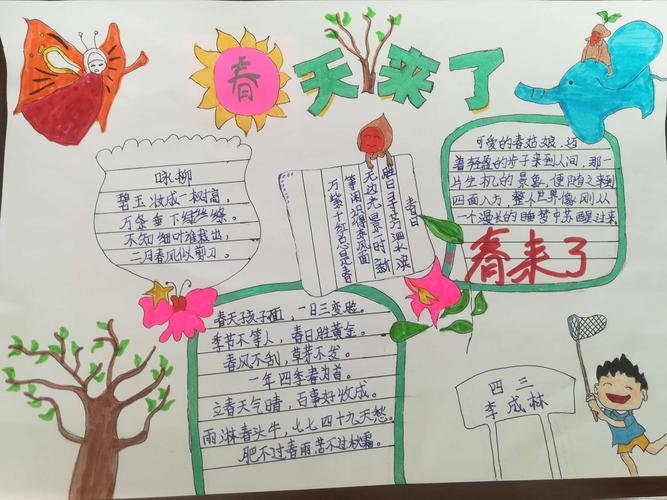 春天来了
咏柳
碧玉妆成一树高，
万条垂下绿丝绦。
不知细叶谁裁出，
二月春风似剪刀。
春日
胜日寻芳泗水滨
无边光景一时新
等闲识得东风面
万紫千红总是春
可爱的春姑娘，迈
着轻盈的步子来到人间，那一
片生机的景象，便随之来到
四面八方，整个世界像刚从
一个漫长的睡梦中苏醒过来。
春来了
春天孩子面，一日三变脸。
季节不等人，春日胜黄金。
春风不刮，草芽不发。
一年四季春为首。
立春天气晴，百事好收成。
雨淋春头牛，七七四十九天愁。
肥不过春雨，苦不过秋霜。
四三
李成林